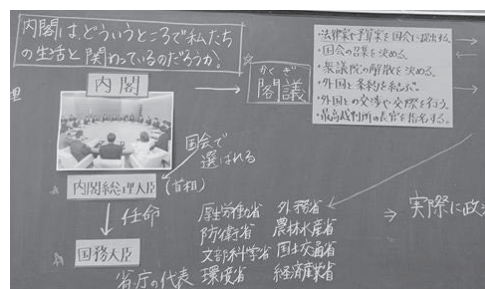 内閣は、どういうところで私たち
の生活と関わっているのだろうか。
内閣
かくぎ
閣議
・法律案や予算案を国会に提出する。
・国会の召集を決める。
・衆議院の解散を決める。
・外国と条約を結ぶ。
・外国との交渉や交際を行う。
・最高裁判所の長官を指名する。
国会で
選ばれる
内閣総理大臣
(首相)
任命
国務大臣
省庁の代表
厚生労働省 外務省
防衛省 農林水産省
文部科学省 国土交通省
環境省 経済産業省
⇒ 実際に政治